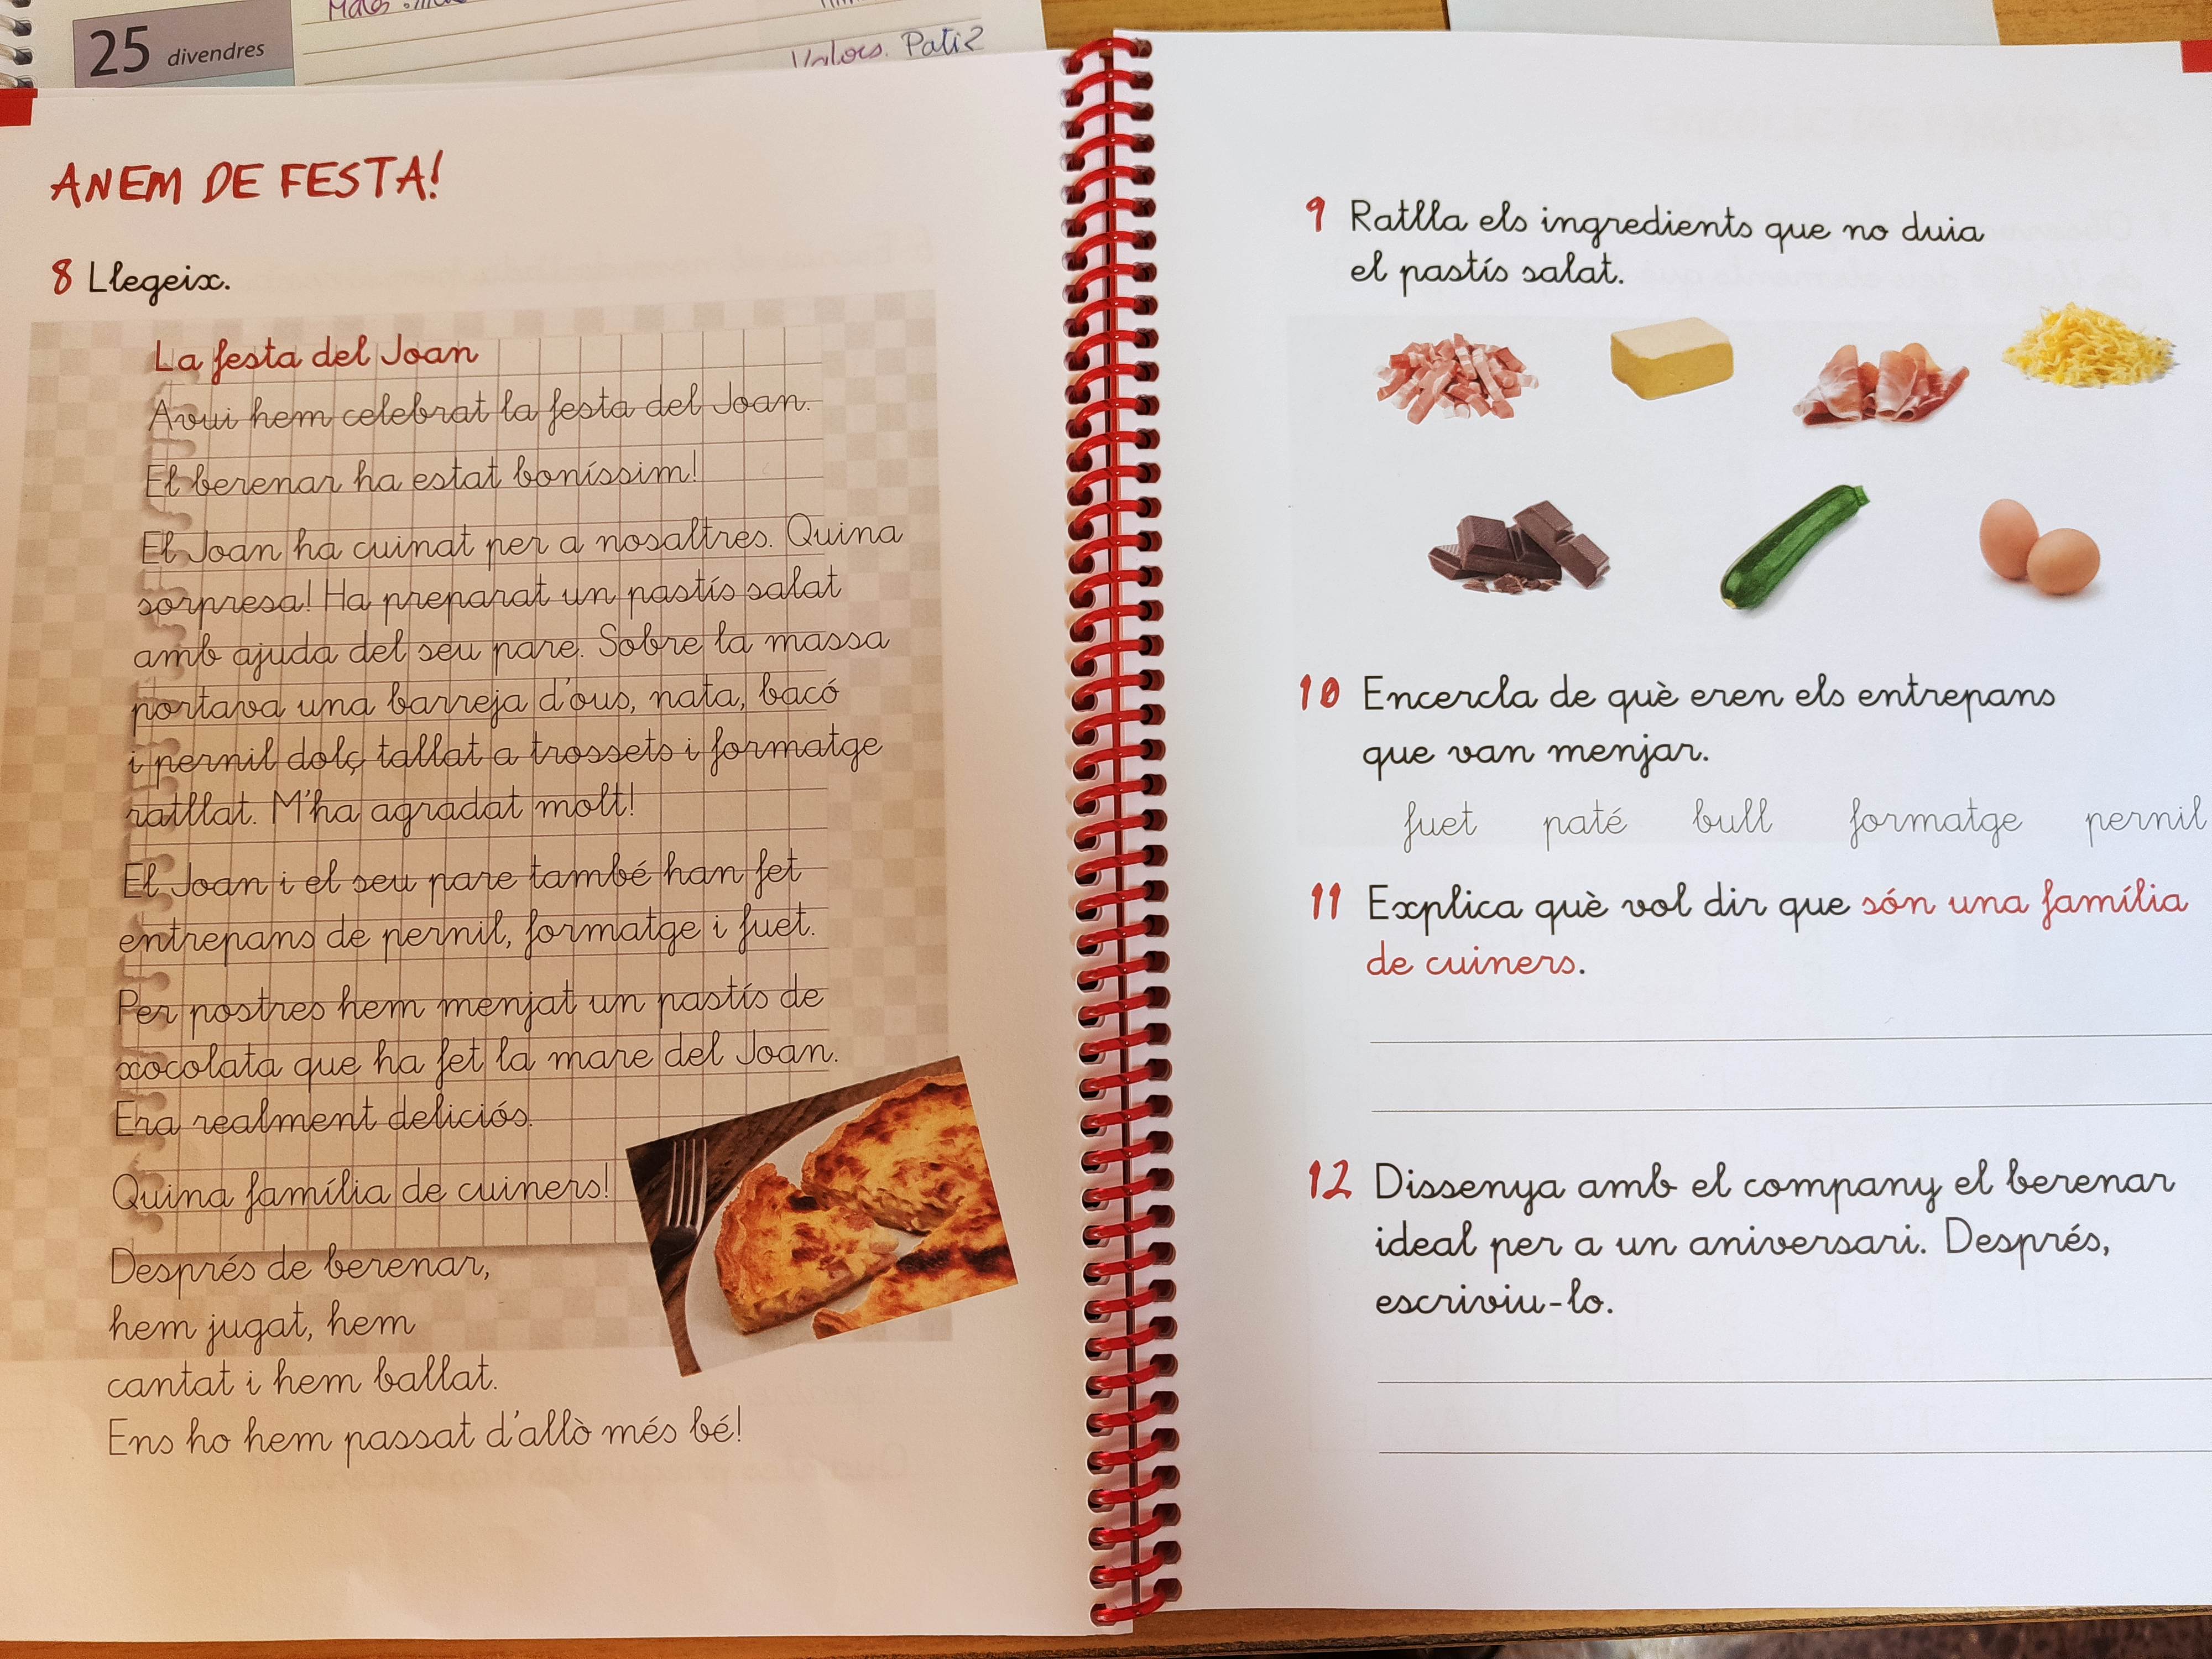 25 divendres
Valors. Pati 2
ANEM DE FESTA!
8 Llegeix.
La festa del Joan
Avui hem celebrat la festa del Joan.
El berenar ha estat boníssim!
El Joan ha cuinat per a nosaltres. Quina
sorpresa! Ha preparat un pastís salat
amb ajuda del seu pare. Sobre la massa
portava una barreja d'ous, nata, bacó
i pernil dolç tallat a trossets i formatge
ratllat. M'ha agradat molt!
El Joan i el seu pare també han fet
entrepans de pernil, formatge i fuet.
Per postres hem menjat un pastís de
xocolata que ha fet la mare del Joan.
Era realment deliciós.
Quina família de cuiners!
Després de berenar,
hem jugat, hem
cantat i hem ballat.
Ens ho hem passat d'allò més bé!
9 Ratlla els ingredients que no duia
el pastís salat.
10 Encercla de què eren els entrepans
que van menjar.
fuet paté bull formatge pernil
11 Explica què vol dir que són una família
de cuiners.
12 Dissenya amb el company el berenar
ideal per a un aniversari. Després,
escriviu-lo.